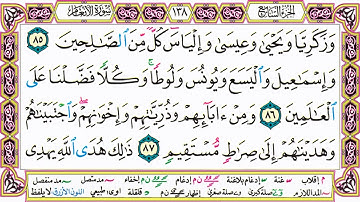 الجزء السابع ١٣٨ سورة الأنعام
وَزَكَرِيَّا وَيَحْيَىٰ وَعِيسَىٰ وَإِلْيَاسَ كُلٌّ مِّنَ ٱلصَّـٰلِحِينَ ٨٥
وَإِسْمَـٰعِيلَ وَٱلْيَسَعَ وَيُونُسَ وَلُوطًا ۚ وَكُلًّا فَضَّلْنَا عَلَى
ٱلْعَـٰلَمِينَ ٨٦ وَمِنْ ءَابَآئِهِمْ وَذُرِّيَّـٰتِهِمْ وَإِخْوَٰنِهِمْ ۖ وَٱجْتَبَيْنَـٰهُمْ
وَهَدَيْنَـٰهُمْ إِلَىٰ صِرَٰطٍ مُّسْتَقِيمٍ ٨٧ ذَٰلِكَ هُدَى ٱللَّهِ يَهْدِى